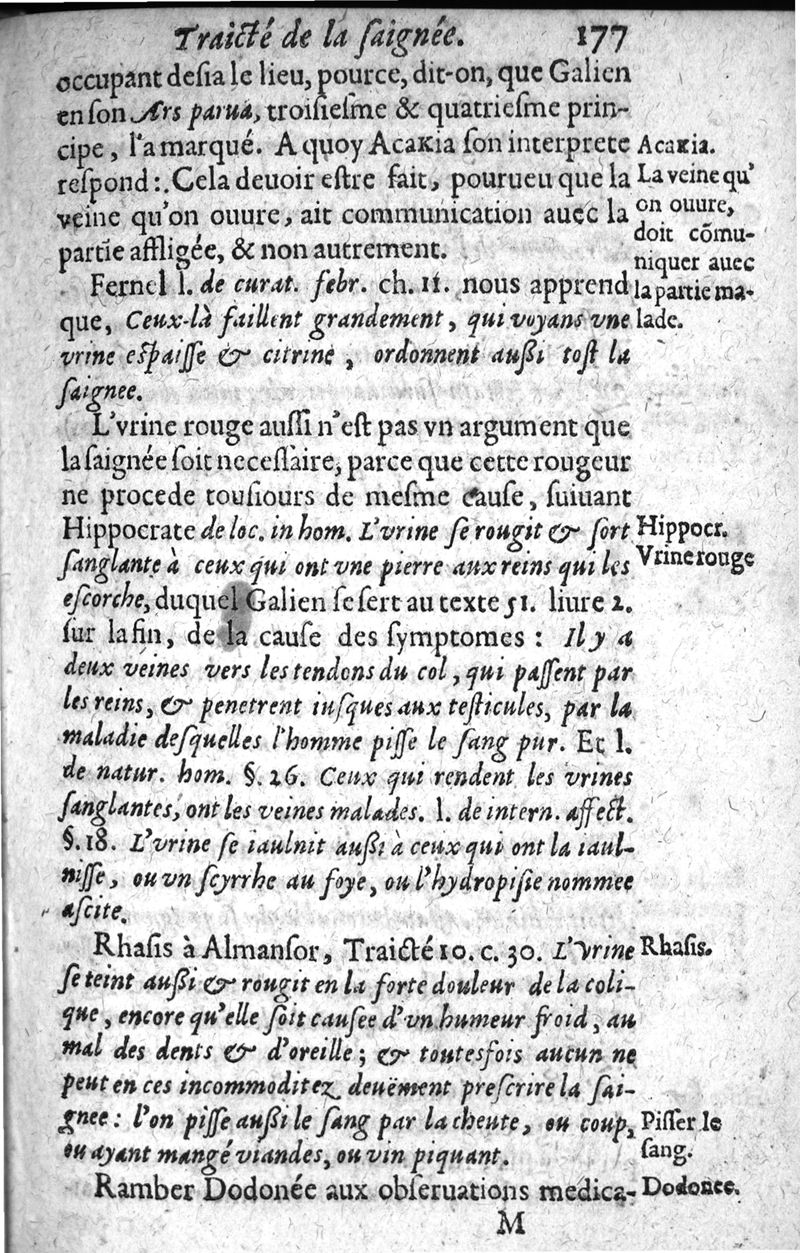 Traicté de la ſaignée. 177
occupant deſia le lieu, pource, dit-on, que Galien
en ſon Ars parua, troiſieſme & quatrieſme prin-
cipe, l'a marqué. A quoy Acakia ſon interprete
Acakia.
reſpond: Cela deuoir eſtre fait, pourueu que la
La veine qu'
veine qu'on ouure, ait communication auec la
on ouure,
doit cõmu-
partie affligée, & non autrement.
niquer auec
Fernel l. de curat. febr. ch. 11. nous apprend
la partie ma-
que, Ceux-là faillent grandement, qui voyans vne
lade.
vrine eſpaiſſe & citrine, ordonnent auſſi toſt la
ſaignee.
L'vrine rouge auſſi n'eſt pas vn argument que
la ſaignée ſoit neceſſaire, parce que cette rougeur
ne procede touſiours de meſme cauſe, ſuiuant
Hippocrate de loc. in hom. L'vrine ſe rougit & ſort
Hippocr.
ſanglante à ceux qui ont vne pierre aux reins qui les
Vrine rouge
eſcorche, duquel Galien ſe ſert au texte 51. liure 2.
ſur la fin, de la cauſe des ſymptomes: Il y a
deux veines vers les tendons du col, qui paſſent par
les reins, & penetrent iuſques aux teſticules, par la
maladie deſquelles l'homme piſſe le ſang pur. Et l.
de natur. hom. §. 26. Ceux qui rendent les vrines
ſanglantes, ont les veines malades. l. de intern. affect.
§. 18. L'vrine ſe iaulnit auſſi à ceux qui ont la iaul-
niſſe, ou vn ſcyrrhe au foye, ou l'hydropiſie nommee
aſcite.
Rhaſis à Almanſor, Traicté 10. c. 30. L'vrine
Rhaſis.
ſe teint auſſi & rougit en la forte douleur de la coli-
que, encore qu'elle ſoit cauſee d'vn humeur froid, au
mal des dents & d'oreille; & toutesfois aucun ne
peut en ces incommoditez deuëment preſcrire la ſai-
gnee: l'on piſſe auſſi le ſang par la cheute, ou coup,
Piſſer le
ou ayant mangé viandes, ou vin piquant.
ſang.
Ramber Dodonée aux obſeruations medica-
Dodonee.
M